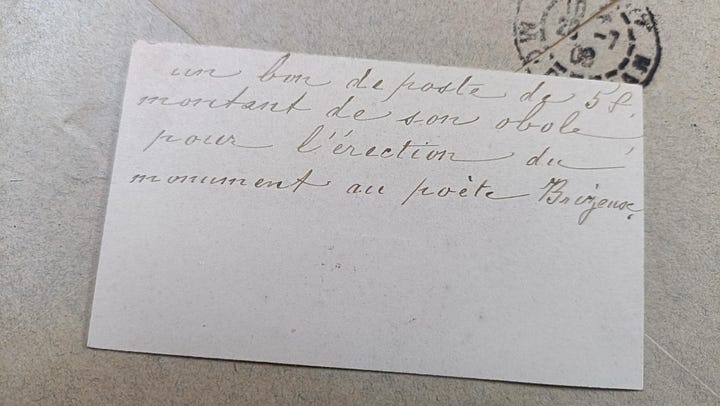 un bon de poste de 5 f.
montant de son obole
pour l'érection du
monument au poète Brizeux.